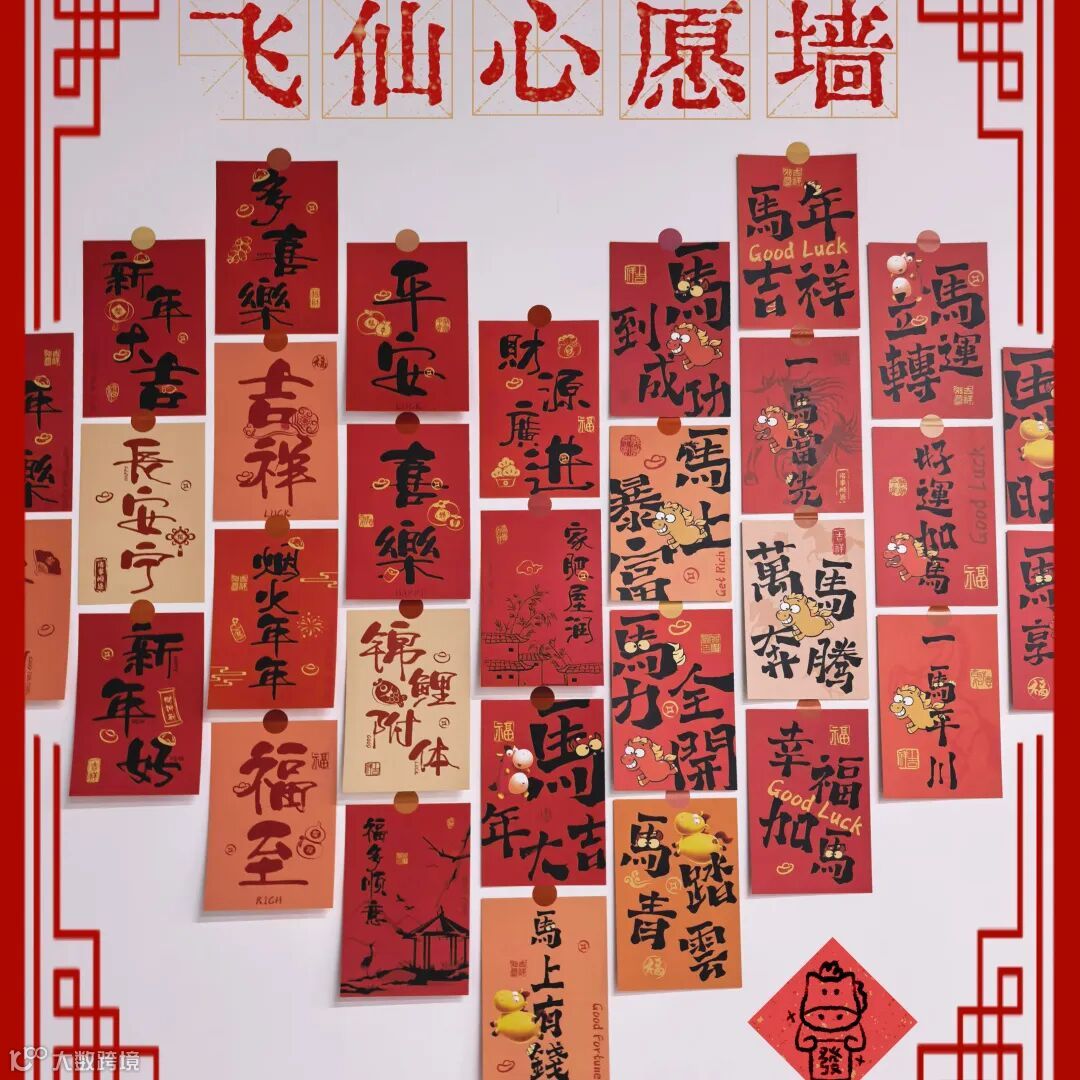 飞仙心愿墙
年樂
新年大吉
長安宁
新年好
多喜樂
吉祥
LUCK
烟火年年
福至
RICH
平安
LUCK
喜樂
HAPPY
锦鲤附体
福多顺意
財源廣進
福
家肥屋润
馬年大吉
福
馬上有錢
Good Fortune
馬到成功
馬上暴富
Get Rich
馬力全開
馬踏青雲
福
馬年吉祥
Good Luck
一馬當先
萬馬奔騰
吉祥
幸福加馬
Good Luck
福
馬運立轉
好運加馬
Good Luck
福
一馬平川
旺
福
發
大数跨境